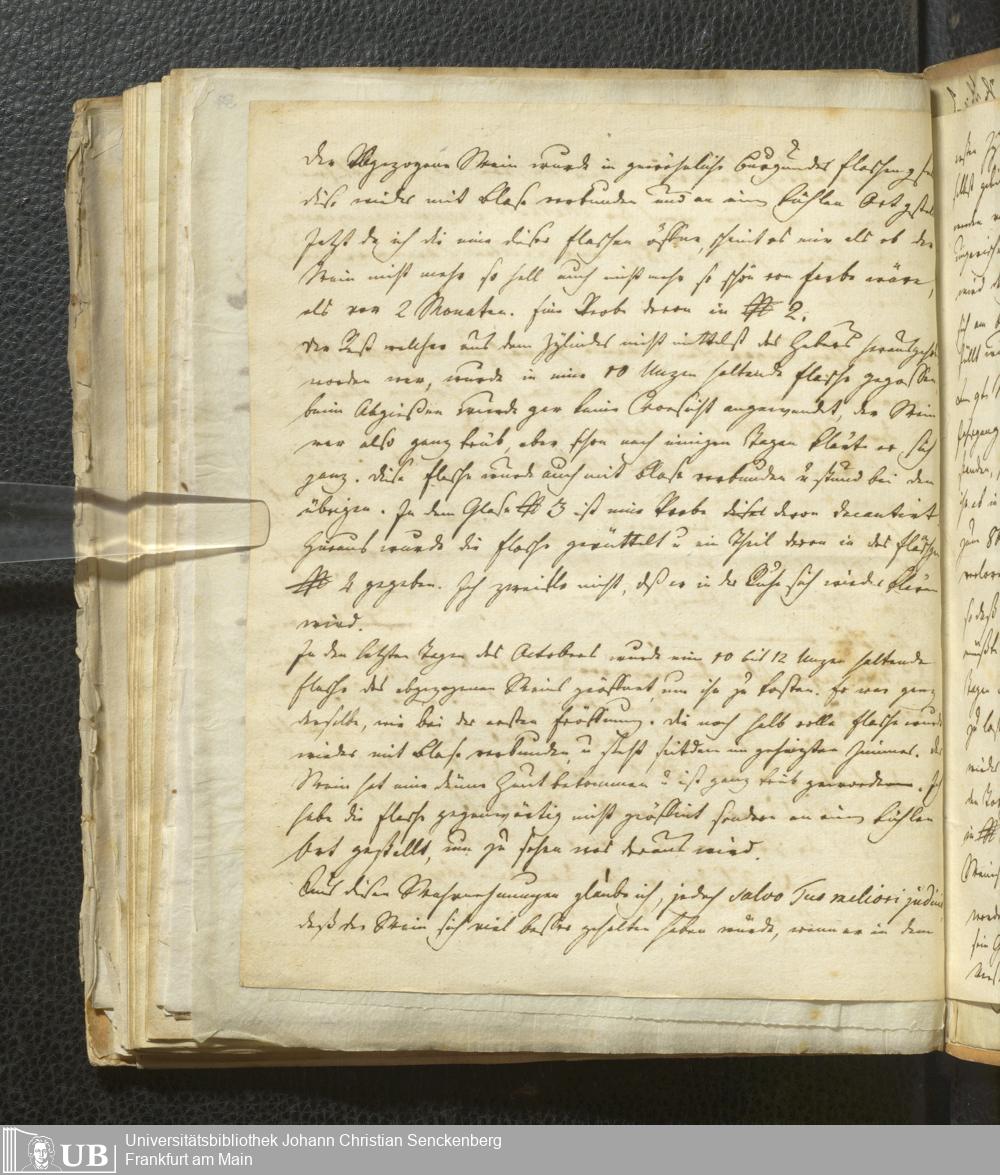 Der Abgezogene Wein wurde in gewöhnliche Burgunder Flaschen
diese wieder mit Blase verbunden und an einen kühlen Ort
Jetzt da ich die eine dieser Flaschen öffne, scheint es mir als ob der
Wein nicht mehr so hell auch nicht mehr so schön von Farbe wäre,
als vor 2 Monaten. Eine Probe davon in # 2.
Der Rest welcher aus dem Zylinder nicht mittelst des Hebers
worden war, wurde in eine 10 Unzen haltende Flasche gegossen
beim Abgießen wurde gar keine Vorsicht angewendet, der Wein
war also ganz trüb, aber schon nach einigen Tagen klärte er sich
ganz. Diese Flasche wurde auch mit Blase verbunden u stund bei den
übrigen. In dem Glase # 3 ist eine Probe davon decantirt
Hieraus wurde die Flasche gerüttelt u ein Theil davon in das
# 4 gegeben. Ich zweifle nicht, daß er in der Ruhe sich wieder klären
wird.
In den letzten Tagen des Octobers wurde eine 10 bis 12 Unzen haltende
Flasche des abgezogenen Weins geöffnet, um ihn zu kosten. Er war ganz
derselbe, wie bei der ersten Eröffnung. Die noch halb volle Flasche wurde
wieder mit Blase verbunden, u steht seitdem im geheizten Zimmer. Der
Wein hat eine dünne Haut bekommen u ist ganz trüb geworden. Ich
habe die Flasche gegenwärtig nicht geöffnet sondern an einen kühlen
Ort gestellt, um zu sehen was daraus wird.
Aus diesen Wahrnehmungen glaube ich, jedoch salvo
daß der Wein sich viel besser gehalten haben würde, wenn er in dem
Universitätsbibliothek Johann Christian Senckenberg
UB Frankfurt am Main